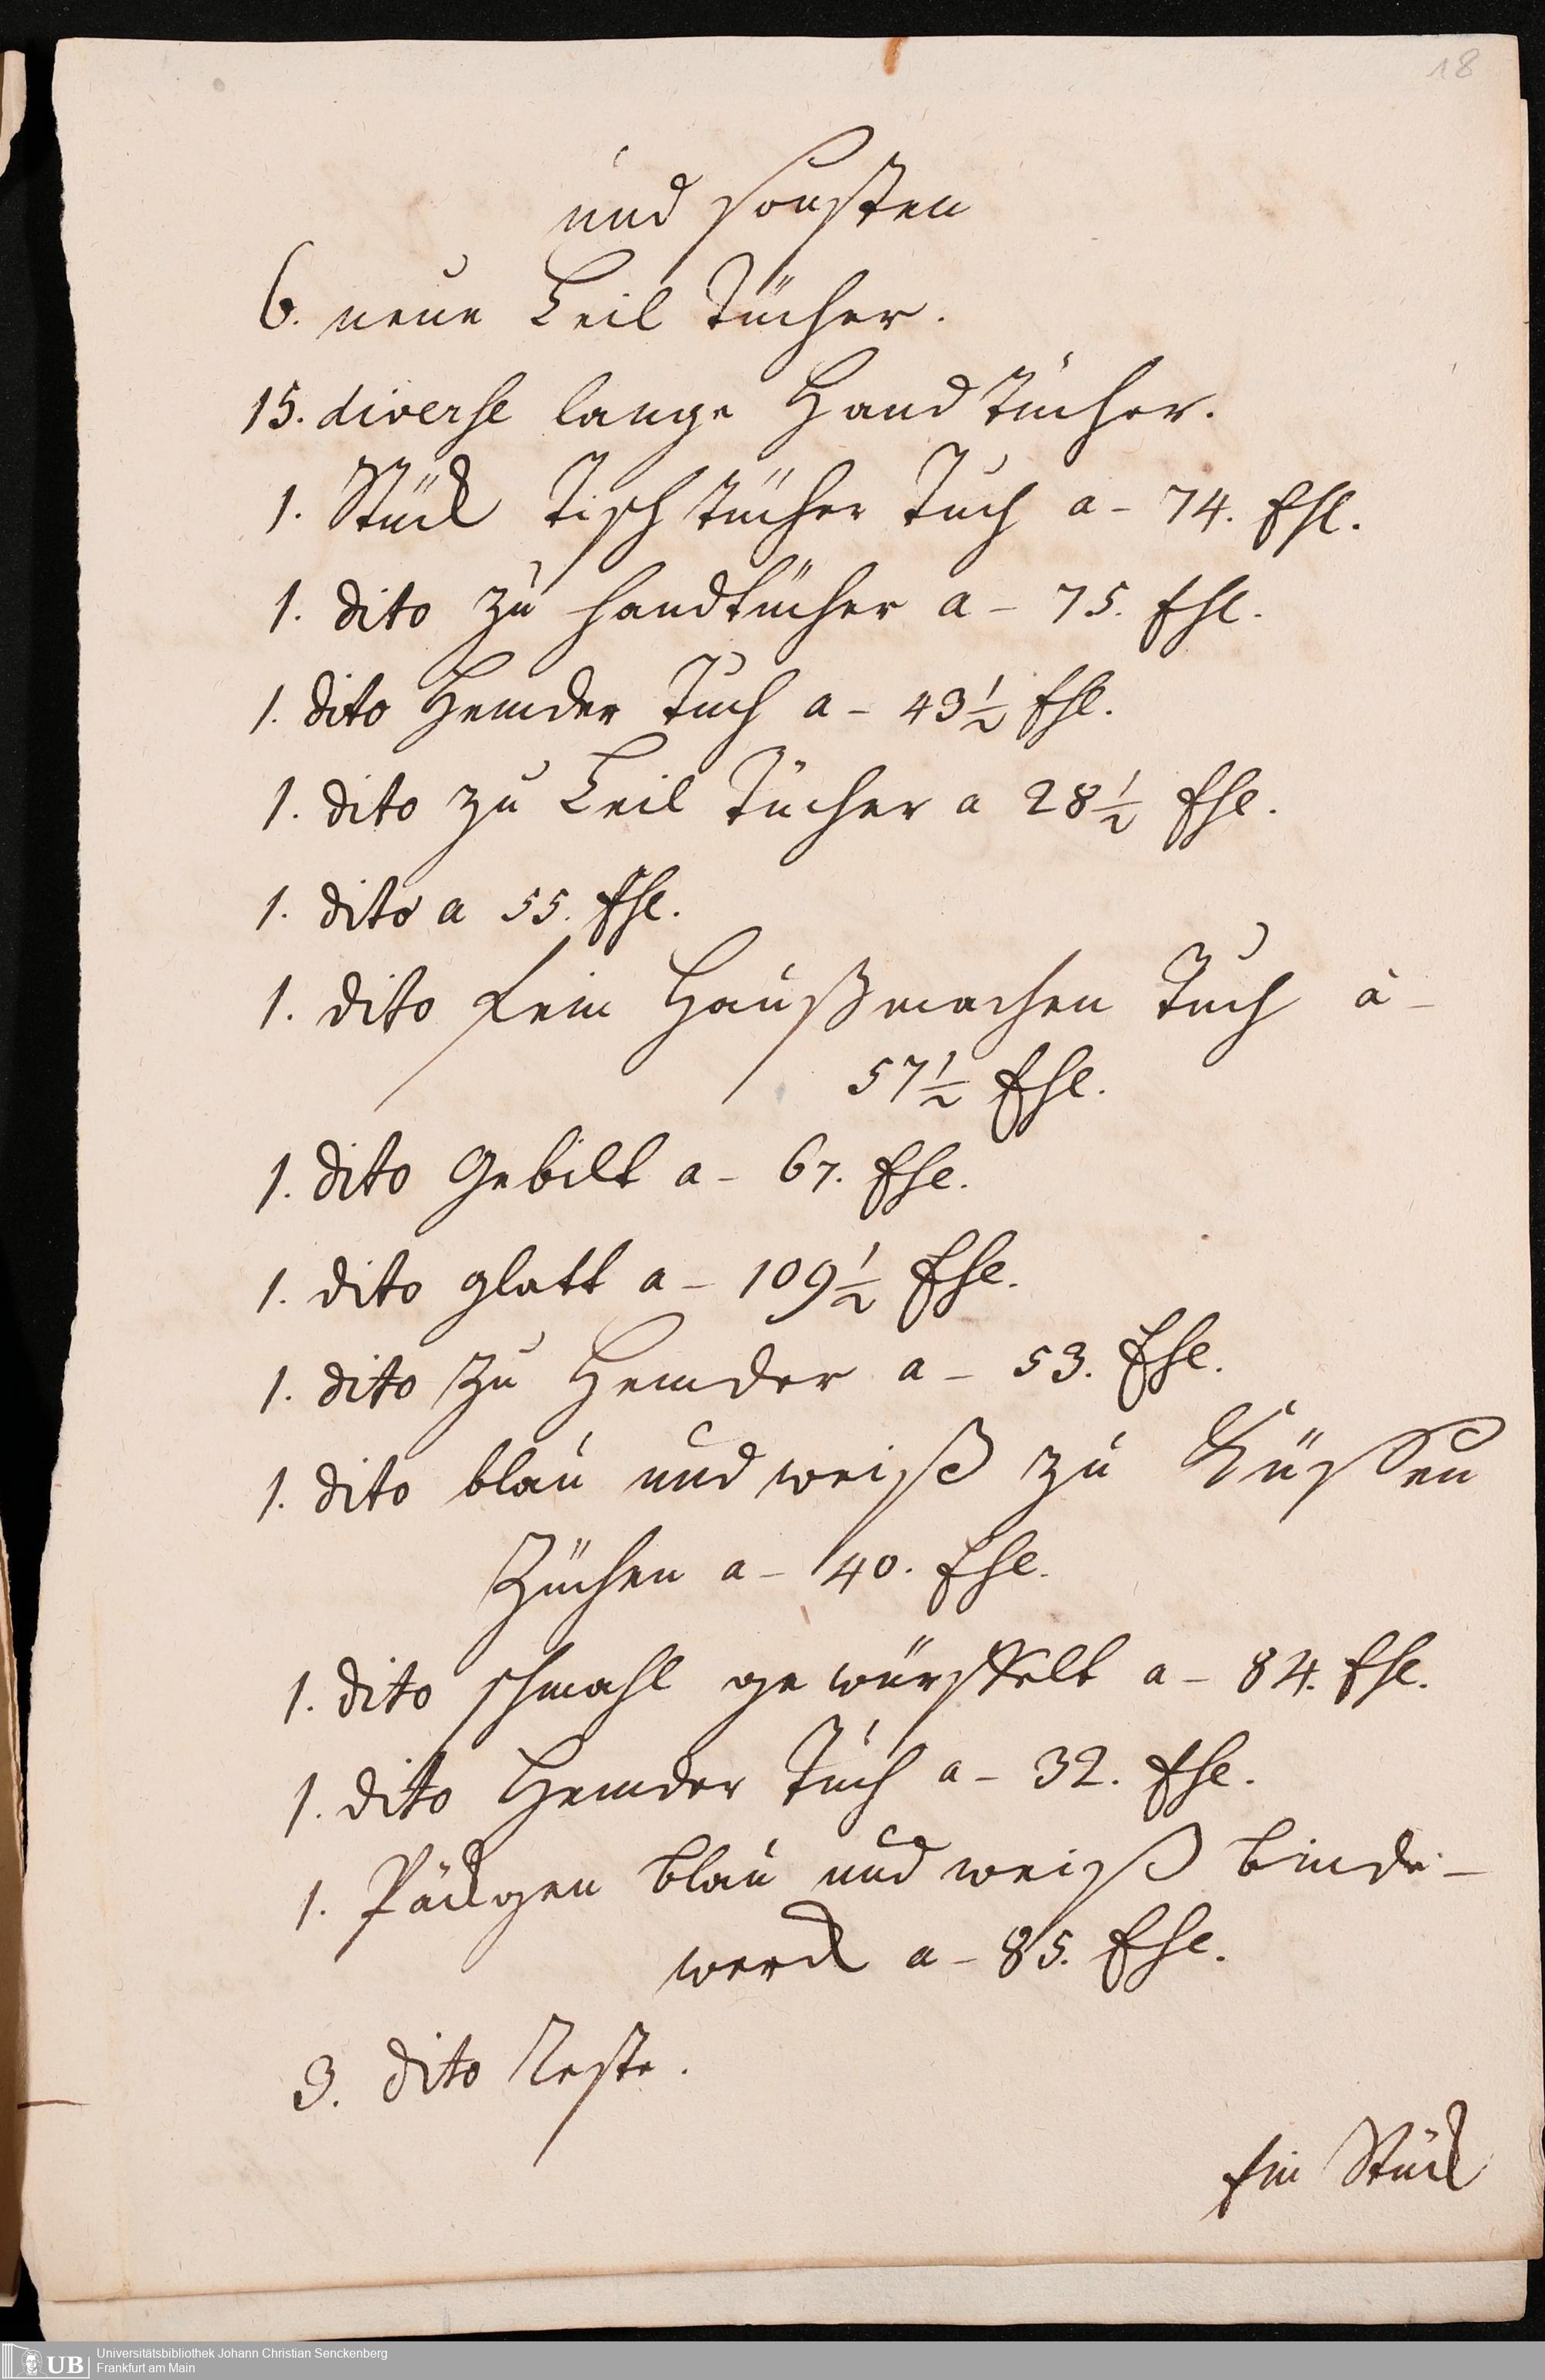 18
und sonsten
6. neue Leil Tücher.
15. diverse lange Handtücher.
1. Stück Tischtücher Tuch a - 74. Ehl.
1. dito zu handtücher a - 75. Ehl.
1. dito Hemder Tuch a - 43 1/2 Ehl.
1. dito zu Leil Tücher a 28 1/2 Ehl.
1. dito a 55. Ehl.
1. dito fein Haußmachen Tuch a -
57 1/2 Ehl.
1. dito Gebilt a - 67. Ehl.
1. dito glatt a - 109 1/2 Ehl.
1. dito zu Hemder a - 53. Ehl.
1. dito blau und weiß zu Küssen
Züchen a - 40. Ehl.
1. dito schmahl gewürffelt a - 84. Ehl.
1. dito Hemder Tuch a - 32. Ehl.
1. Päckgen blau und weiß Binde-
werck a - 85. Ehl.
3. dito Reste.
Ein Stück
UB
Universitätsbibliothek Johann Christian Senckenberg
Frankfurt am Main